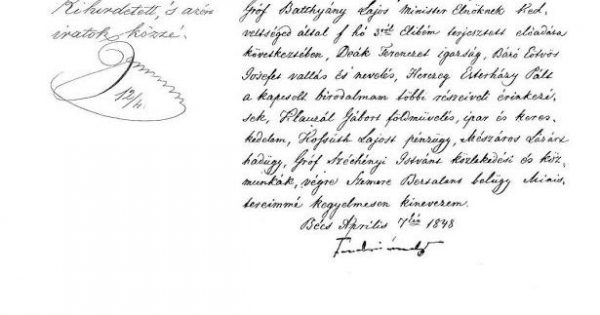 Kihirdetett, s azon
iratok közzé.
12/4.
Gróf Batthyány Lajos Minister Elnöknek Ked-
veltséged által f hó 3án Elibém terjesztett előadása
következtében, Deák Ferenczet igazság, Báró Eötvös
Jozsefet vallás és nevelés, Herczeg Esterházy Pált
a kapcsolt birodalmam többi részeiveli érintkezé-
sek, Klauzál Gábort földművelés, ipar és keres-
kedelem, Kossúth Lajost pénzügy, Mészáros Lázárt
hadügy, Gróf Széchényi Istvánt közlekedési és köz-
munkák, végre Szemere Bertalant belügy Minis-
tereimmé kegyelmesen kinevezem.
Bécs Április 7én 1848